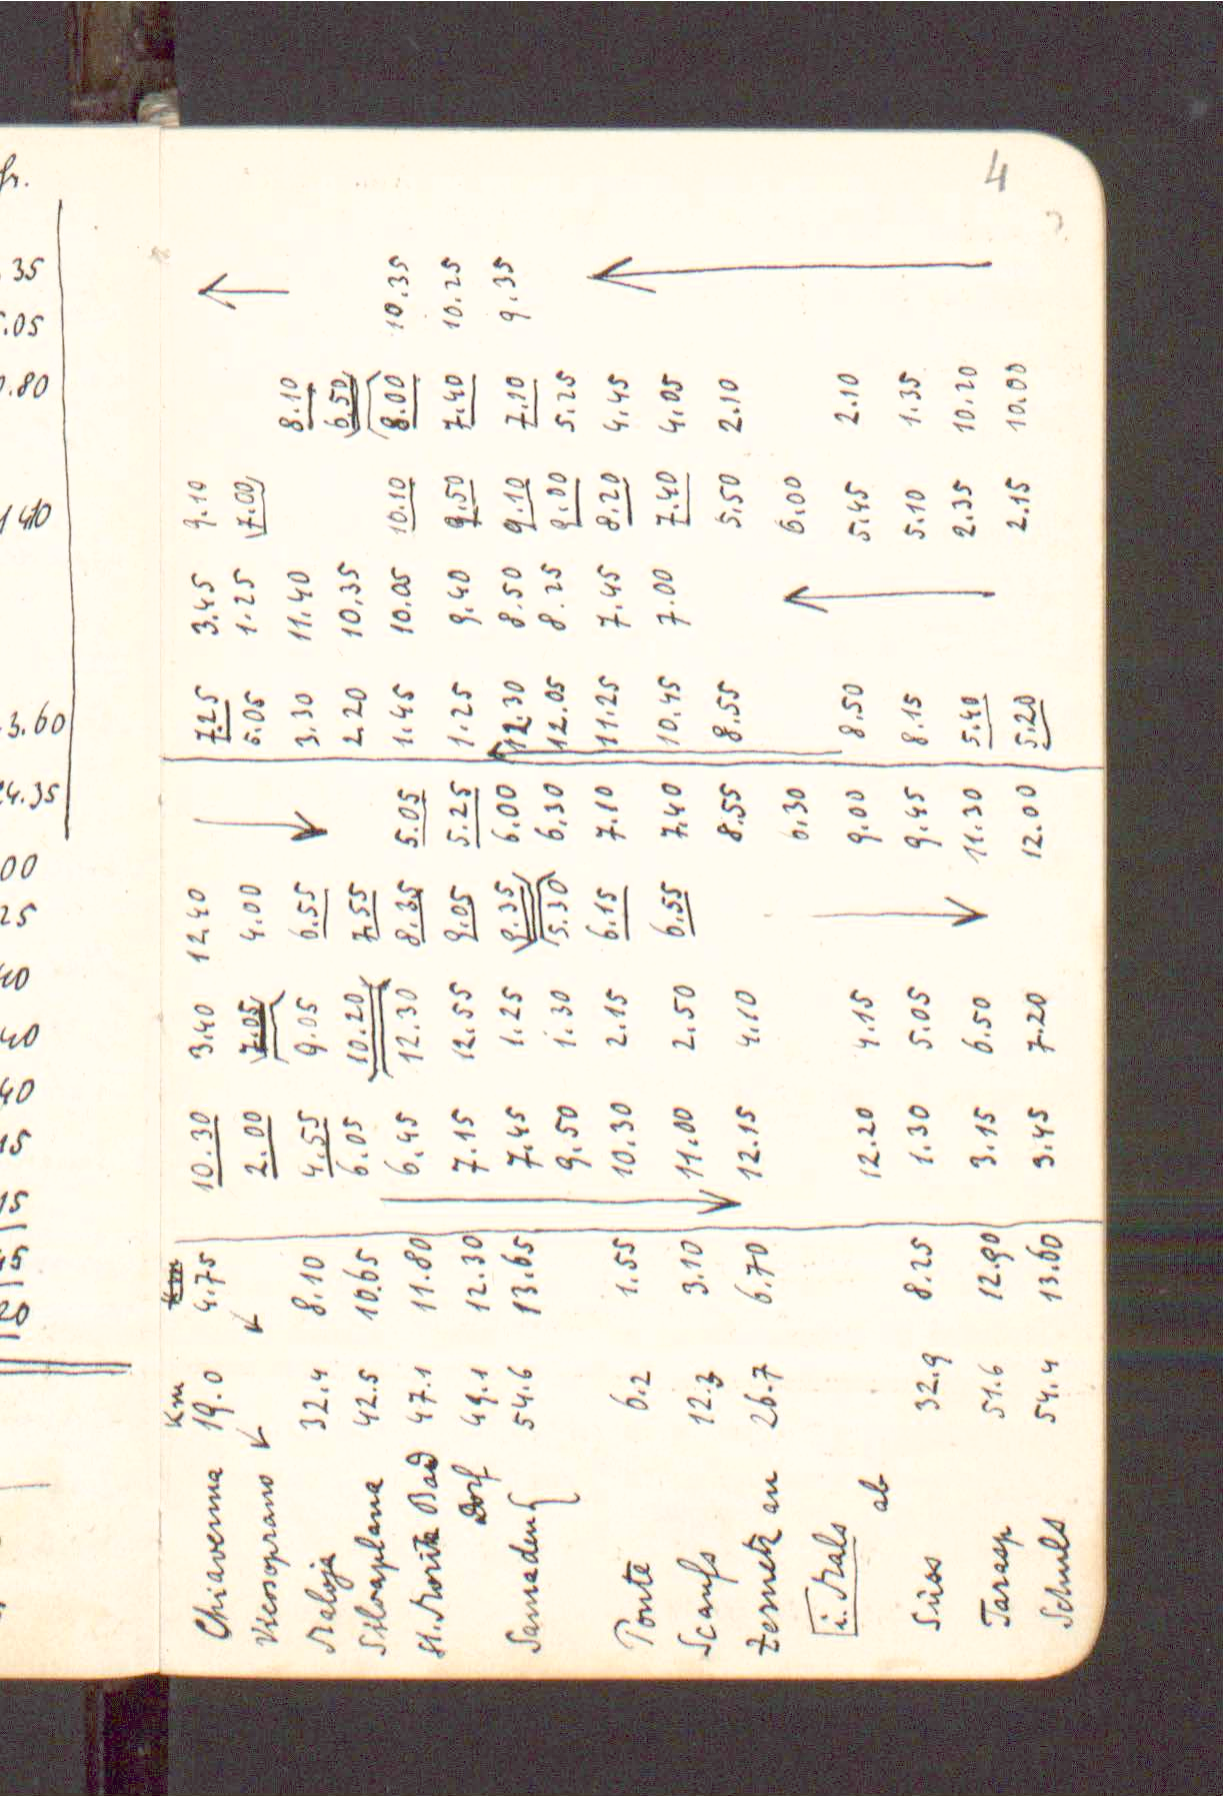 fr.
35
.05
.80
1 40
3.60
24.35
00
25
40
40
40
15
15
45
20
4
Km Km
Chiavenna 19.0 4.75 10.30 3.40 12.40 7.25 3.45 9.10
Vicosoprano 2.00 7.05 4.00 5.05 1.25 7.00
Maloja 32.4 8.10 4.55 9.05 6.55 3.30 11.40 8.10
Silvaplana 42.5 10.65 6.05 10.20 7.55 2.20 10.35 6.50
St. Moritz Bad 47.1 11.80 6.45 12.30 8.35 5.05 1.45 10.05 10.10 8.00 10.35
Dorf 49.1 12.30 7.15 12.55 9.05 5.25 1.25 9.40 9.50 7.40 10.25
Samaden 54.6 13.65 7.45 1.25 9.35 6.00 12.30 8.50 9.10 7.10 9.35
9.50 1.30 5.30 6.30 12.05 8.25 9.00 5.25
Ponte 6.2 1.55 10.30 2.15 6.15 7.10 11.25 7.45 8.20 4.45
Scanfs 12.3 3.10 11.00 2.50 6.55 7.40 10.45 7.00 7.40 4.05
Zernetz an 26.7 6.70 12.15 4.10 8.55 8.55 5.50 2.10
i. Mals 6.30 6.00
ab 12.20 4.15 9.00 8.50 5.45 2.10
Süss 32.9 8.25 1.30 5.05 9.45 8.15 5.10 1.35
Tarasp 51.6 12.90 3.15 6.50 11.30 5.40 2.35 10.20
Schuls 54.4 13.60 3.45 7.20 12.00 5.20 2.15 10.00